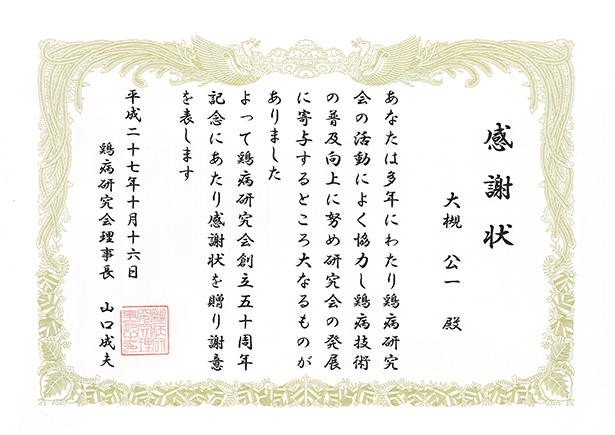 感謝状
大槻 公一 殿
あなたは多年にわたり鶏病研究
会の活動によく協力し鶏病技術
の普及向上に努め研究会の発展
に寄与するところ大なるものが
ありました
よって鶏病研究会創立五十周年
記念にあたり感謝状を贈り謝意
を表します
平成二十七年十月十六日
鶏病研究会理事長 山口成夫